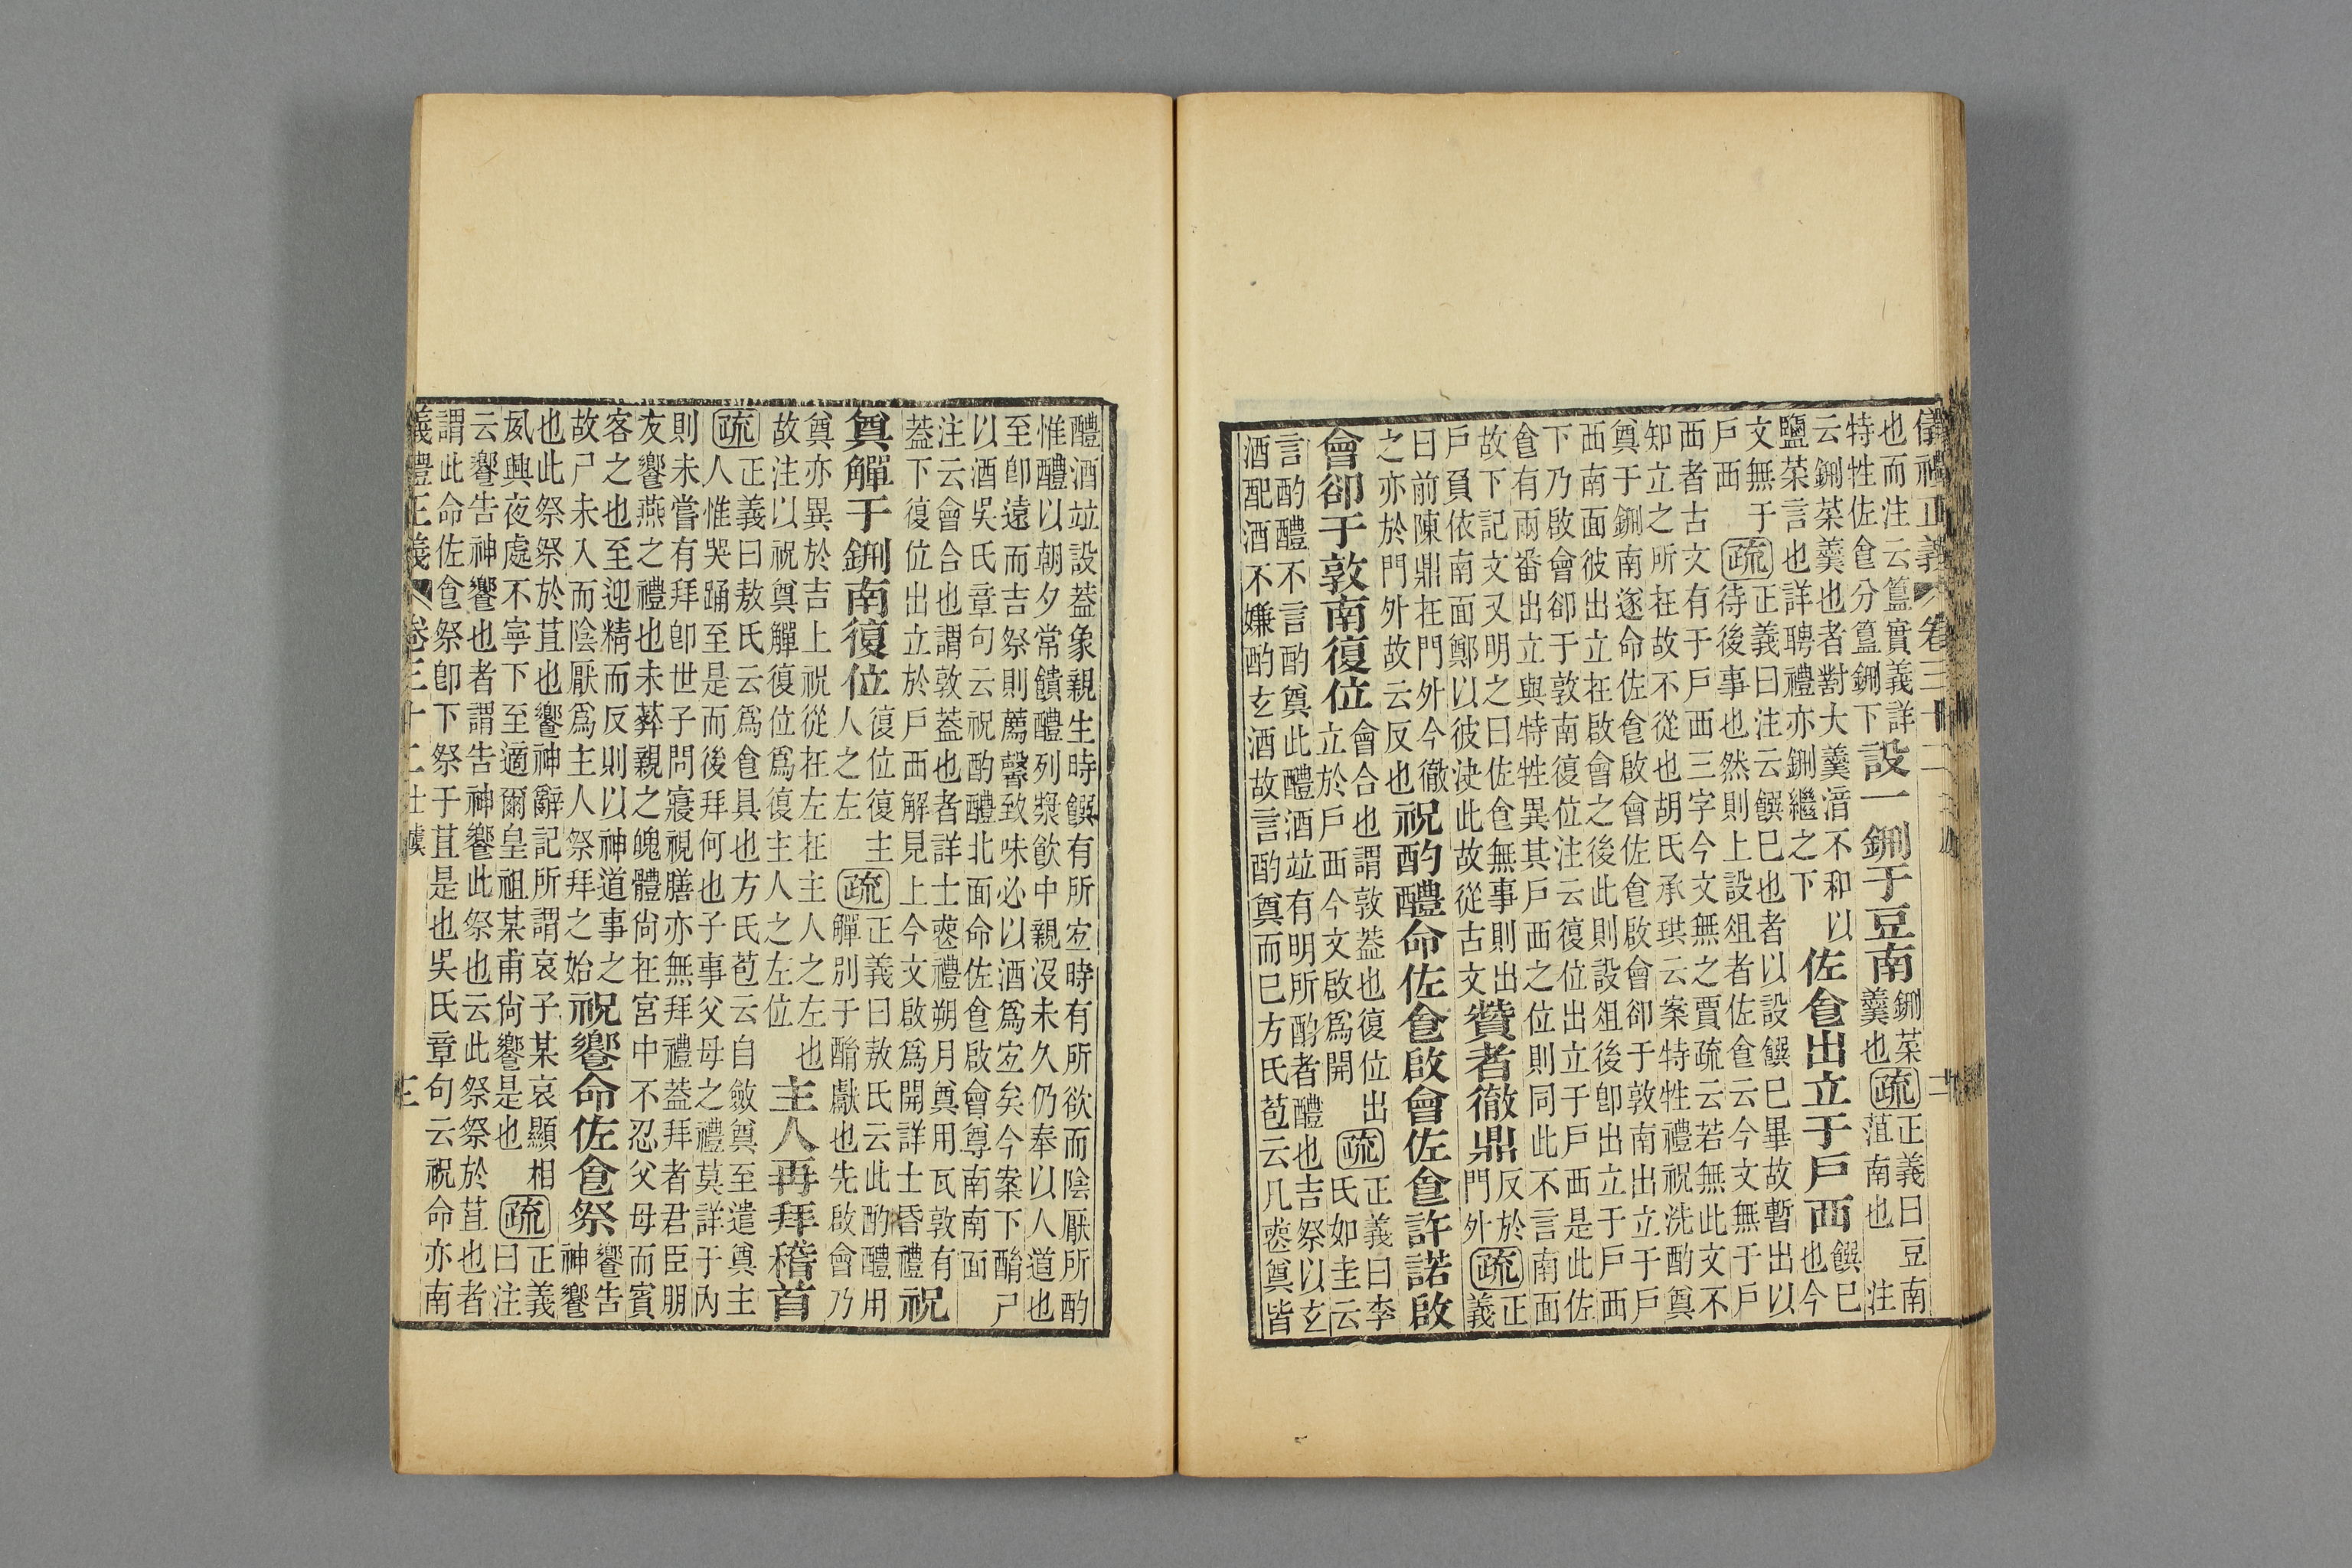 儀禮正義 卷三十二 二
也而注云簋實義詳
特牲佐食分簋鉶下
設一鉶于豆南
鉶菜
羹也
疏
正義曰豆南
菹南也 注
云鉶菜羹也者對大羹湇不和以
鹽菜言也詳聘禮亦鉶繼之下
佐食出立于戶西
饌已
也今
文無于
戶西
疏
正義曰注云饌已也者以設饌已畢故暫出以
待後事也然則上設俎者佐食云今文無于戶
西者古文有于戶西三字今文無之賈疏云若無此文不
知立之所在故不從也胡氏承珙云案特牲禮祝洗酌奠
奠于鉶南遂命佐食啟會佐食啟會卻于敦南出立于戶
西南面彼出立在啟會之後此則設俎後卽出立于戶西
下乃啟會卻于敦南復位注云復位出立于戶西是此佐
食有兩番出立與特牲異其戶西之位則同此不言南面
故下記文又明之曰佐食無事則出
戶負依南面鄭以彼決此故從古文
贊者徹鼎
反於
門外
疏
正
義
曰前陳鼎在門外今徹
之亦於門外故云反也
祝酌醴命佐食啟會佐食許諾啟
會卻于敦南復位
會合也謂敦蓋也復位出
立於戶西今文啟爲開
疏
正義曰李
氏如圭云
言酌醴不言酌奠此醴酒竝有明所酌者醴也吉祭以玄
酒配酒不嫌酌玄酒故言酌奠而已方氏苞云凡喪奠皆
醴酒竝設蓋象親生時饌有所宜時有所欲而陰厭所酌
惟醴以朝夕常饋醴列漿飲中親沒未久仍奉以人道也
至卽遠而吉祭則薦馨致味必以酒爲宜矣今案下酳尸
以酒吳氏章句云祝酌醴北面命佐食啟會尊南南面
注云會合也謂敦蓋也者詳士喪禮朔月奠用瓦敦有
蓋下復位出立於戶西解見上今文啟爲開詳士昏禮
祝
奠觶于鉶南復位
復位復主
人之左
疏
正義曰敖氏云此酌醴用
觶別于酳獻也先啟會乃
奠亦異於吉上祝從在左在主人之左也
故注以祝奠觶復位爲復主人之左位
主人再拜稽首
疏
正義曰敖氏云爲食具也方氏苞云自斂奠至遣奠主
人惟哭踊至是而後拜何也子事父母之禮莫詳于內
則未嘗有拜卽世子問寢視膳亦無拜禮蓋拜者君臣朋
友饗燕之禮也未葬親之魄體尙在宮中不忍父母而賓
客之也至迎精而反則以神道事之
故尸未入而陰厭爲主人祭拜之始
祝饗命佐食祭
饗告
神饗
也此祭祭於苴也饗神辭記所謂哀子某哀顯相
夙興夜處不寧下至適爾皇祖某甫尙饗是也
疏
正義
曰注
云饗告神饗也者謂告神饗此祭也云此祭祭於苴也者
謂此命佐食祭卽下祭于苴是也吳氏章句云祝命亦南
義禮正義 卷三十二 士虞 三